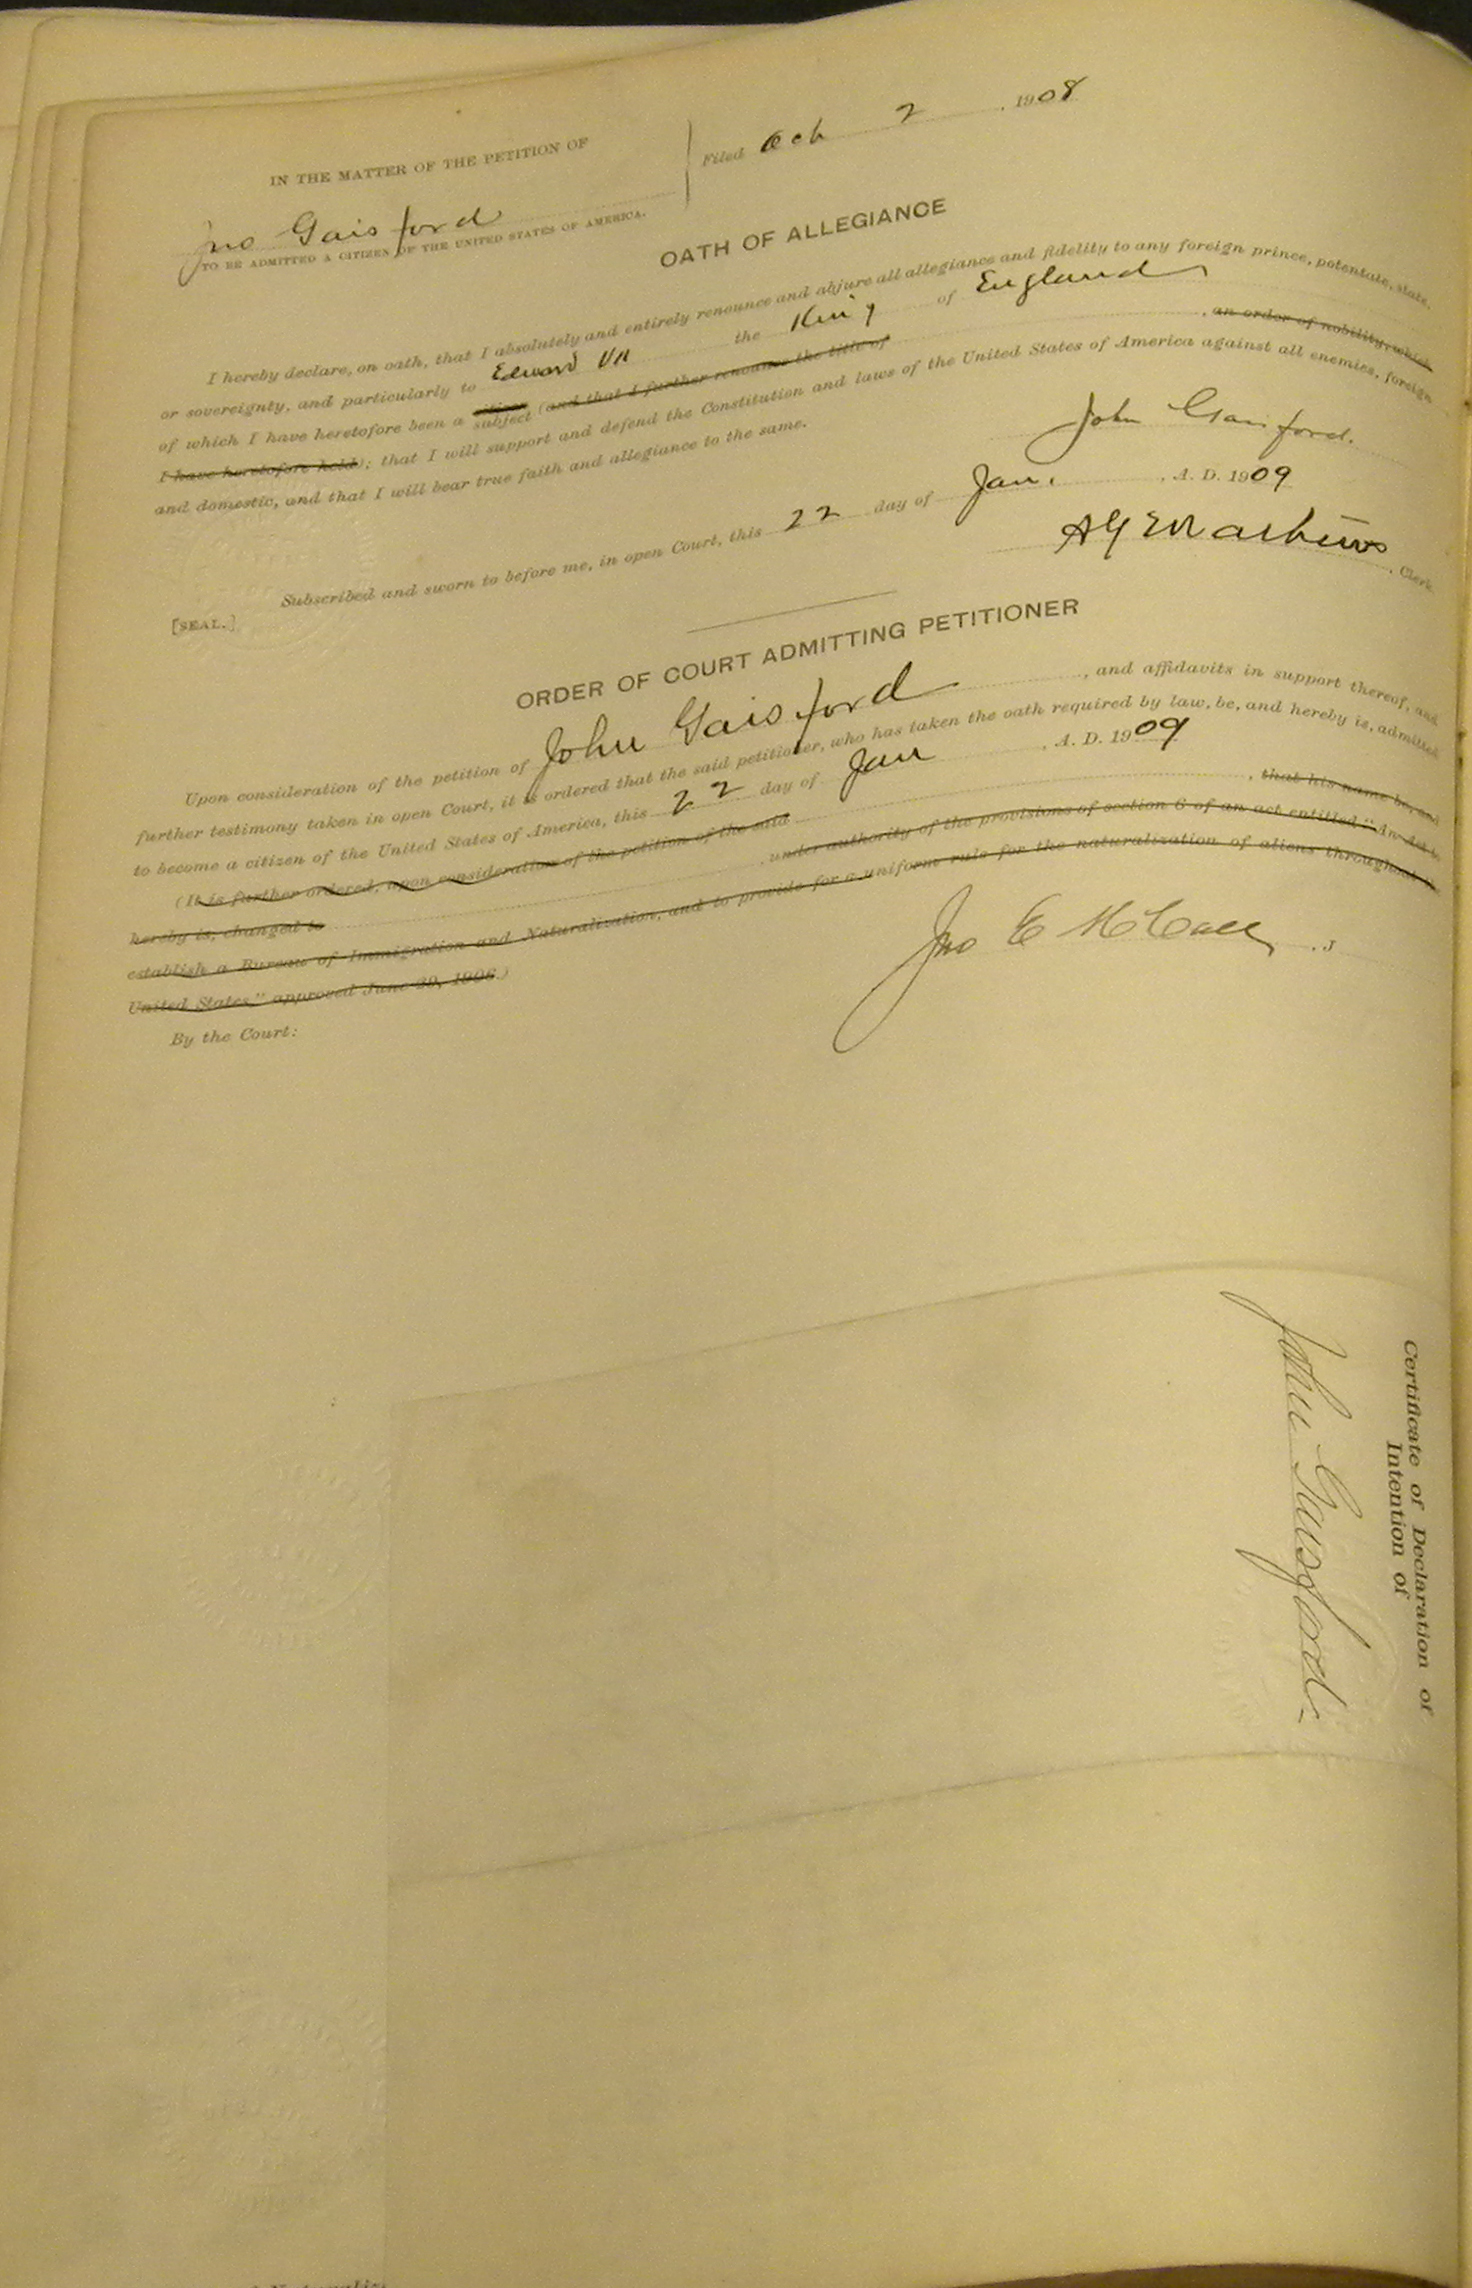 IN THE MATTER OF THE PETITION OF
Jno Gaisford
TO BE ADMITTED A CITIZEN OF THE UNITED STATES OF AMERICA.
Filed Oct 2, 1908
OATH OF ALLEGIANCE
I hereby declare, on oath, that I absolutely and entirely renounce and abjure all allegiance and fidelity to any foreign prince, potentate, state,
or sovereignty, and particularly to Edward VII the King of England
of which I have heretofore been a citizen subject (and that I further renounce the title of , an order of nobility, which
I have heretofore held); that I will support and defend the Constitution and laws of the United States of America against all enemies, foreign
and domestic, and that I will bear true faith and allegiance to the same.
John Gaisford.
Subscribed and sworn to before me, in open Court, this 22 day of Jan., A. D. 1909
[SEAL.]
A G Mathews, Clerk.
ORDER OF COURT ADMITTING PETITIONER
Upon consideration of the petition of John Gaisford, and affidavits in support thereof, and
further testimony taken in open Court, it is ordered that the said petitioner, who has taken the oath required by law, be, and hereby is, admitted
to become a citizen of the United States of America, this 22 day of Jan, A. D. 1909
(It is further ordered, upon consideration of the petition of the said , that his name be, and
hereby is, changed to , under authority of the provisions of section 6 of an act entitled "An Act to
establish a Bureau of Immigration and Naturalization, and to provide for a uniform rule for the naturalization of aliens throughout the
United States," approved June 29, 1906.)
By the Court:
Jno E McCall, J
Certificate of Declaration of
Intention of
John Gaisford.